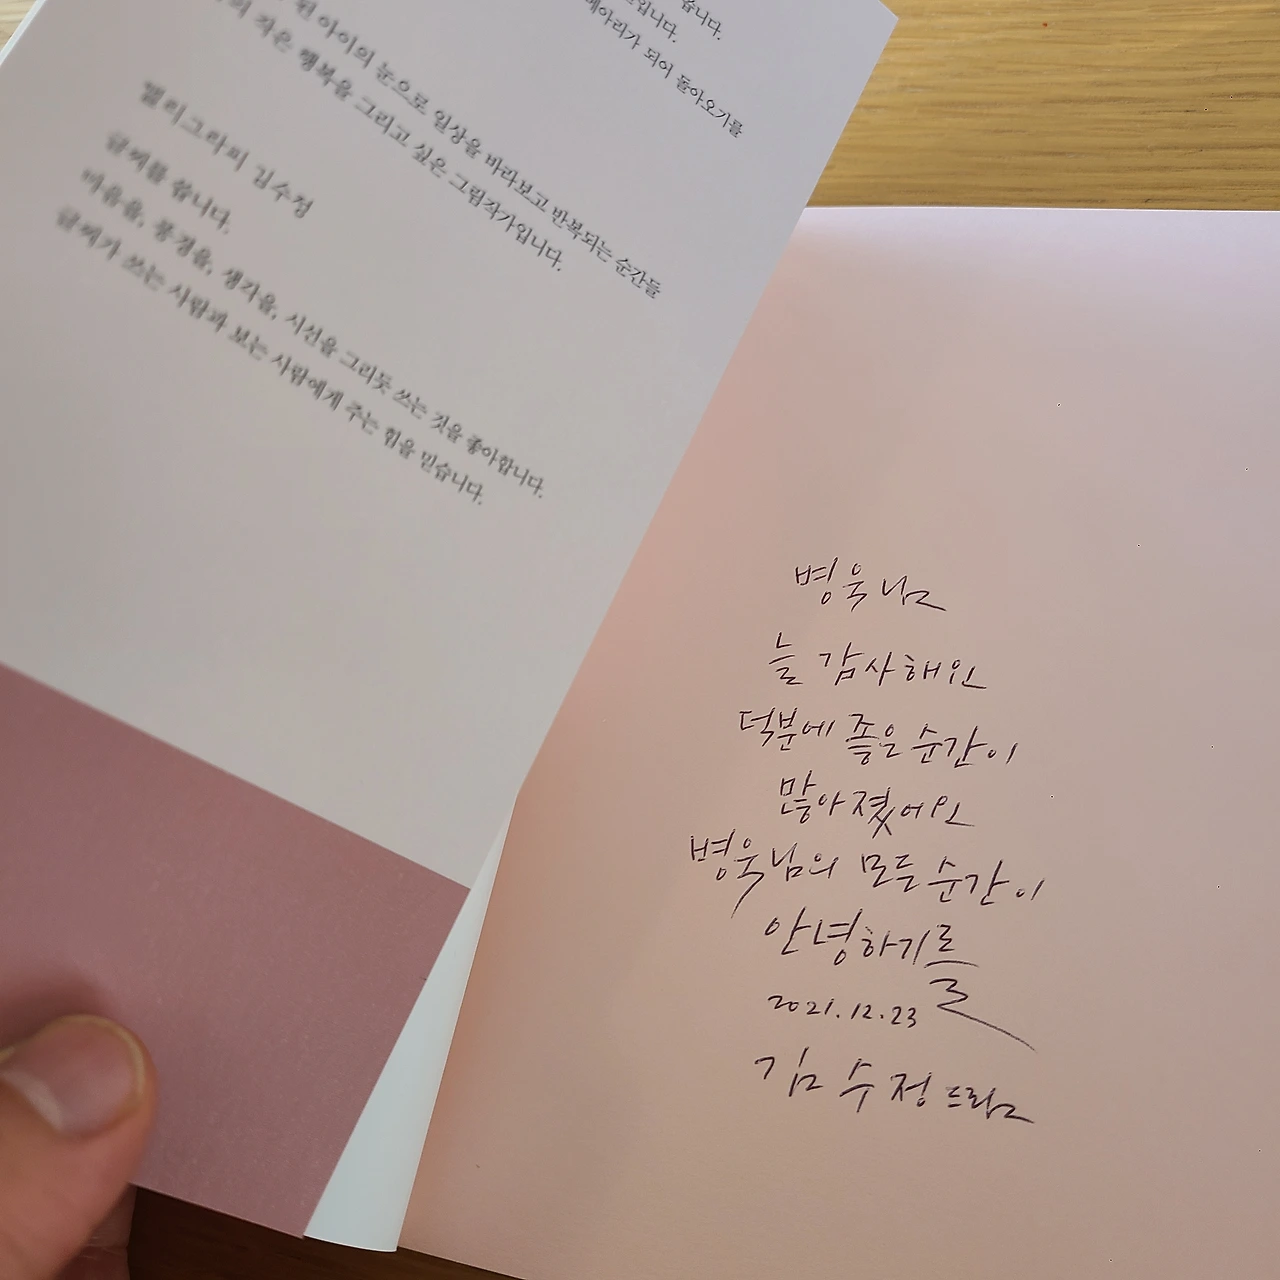 습니다.
입니다.
메아리가 되어 돌아오기를
아이의 눈으로 일상을 바라보고 반복되는 순간들
작은 행복을 그리고 싶은 그림작가입니다.
캘리그라피 김수정
글씨를 씁니다.
마음을, 풍경을, 생각을, 시선을 그리듯 쓰는 것을 좋아합니다.
글씨가 쓰는 사람과 보는 사람에게 주는 힘을 믿습니다.
병욱님
늘 감사해요
덕분에 좋은 순간이
많아졌어요
병욱님의 모든 순간이
안녕하기를
2021.12.23
김수정 드림